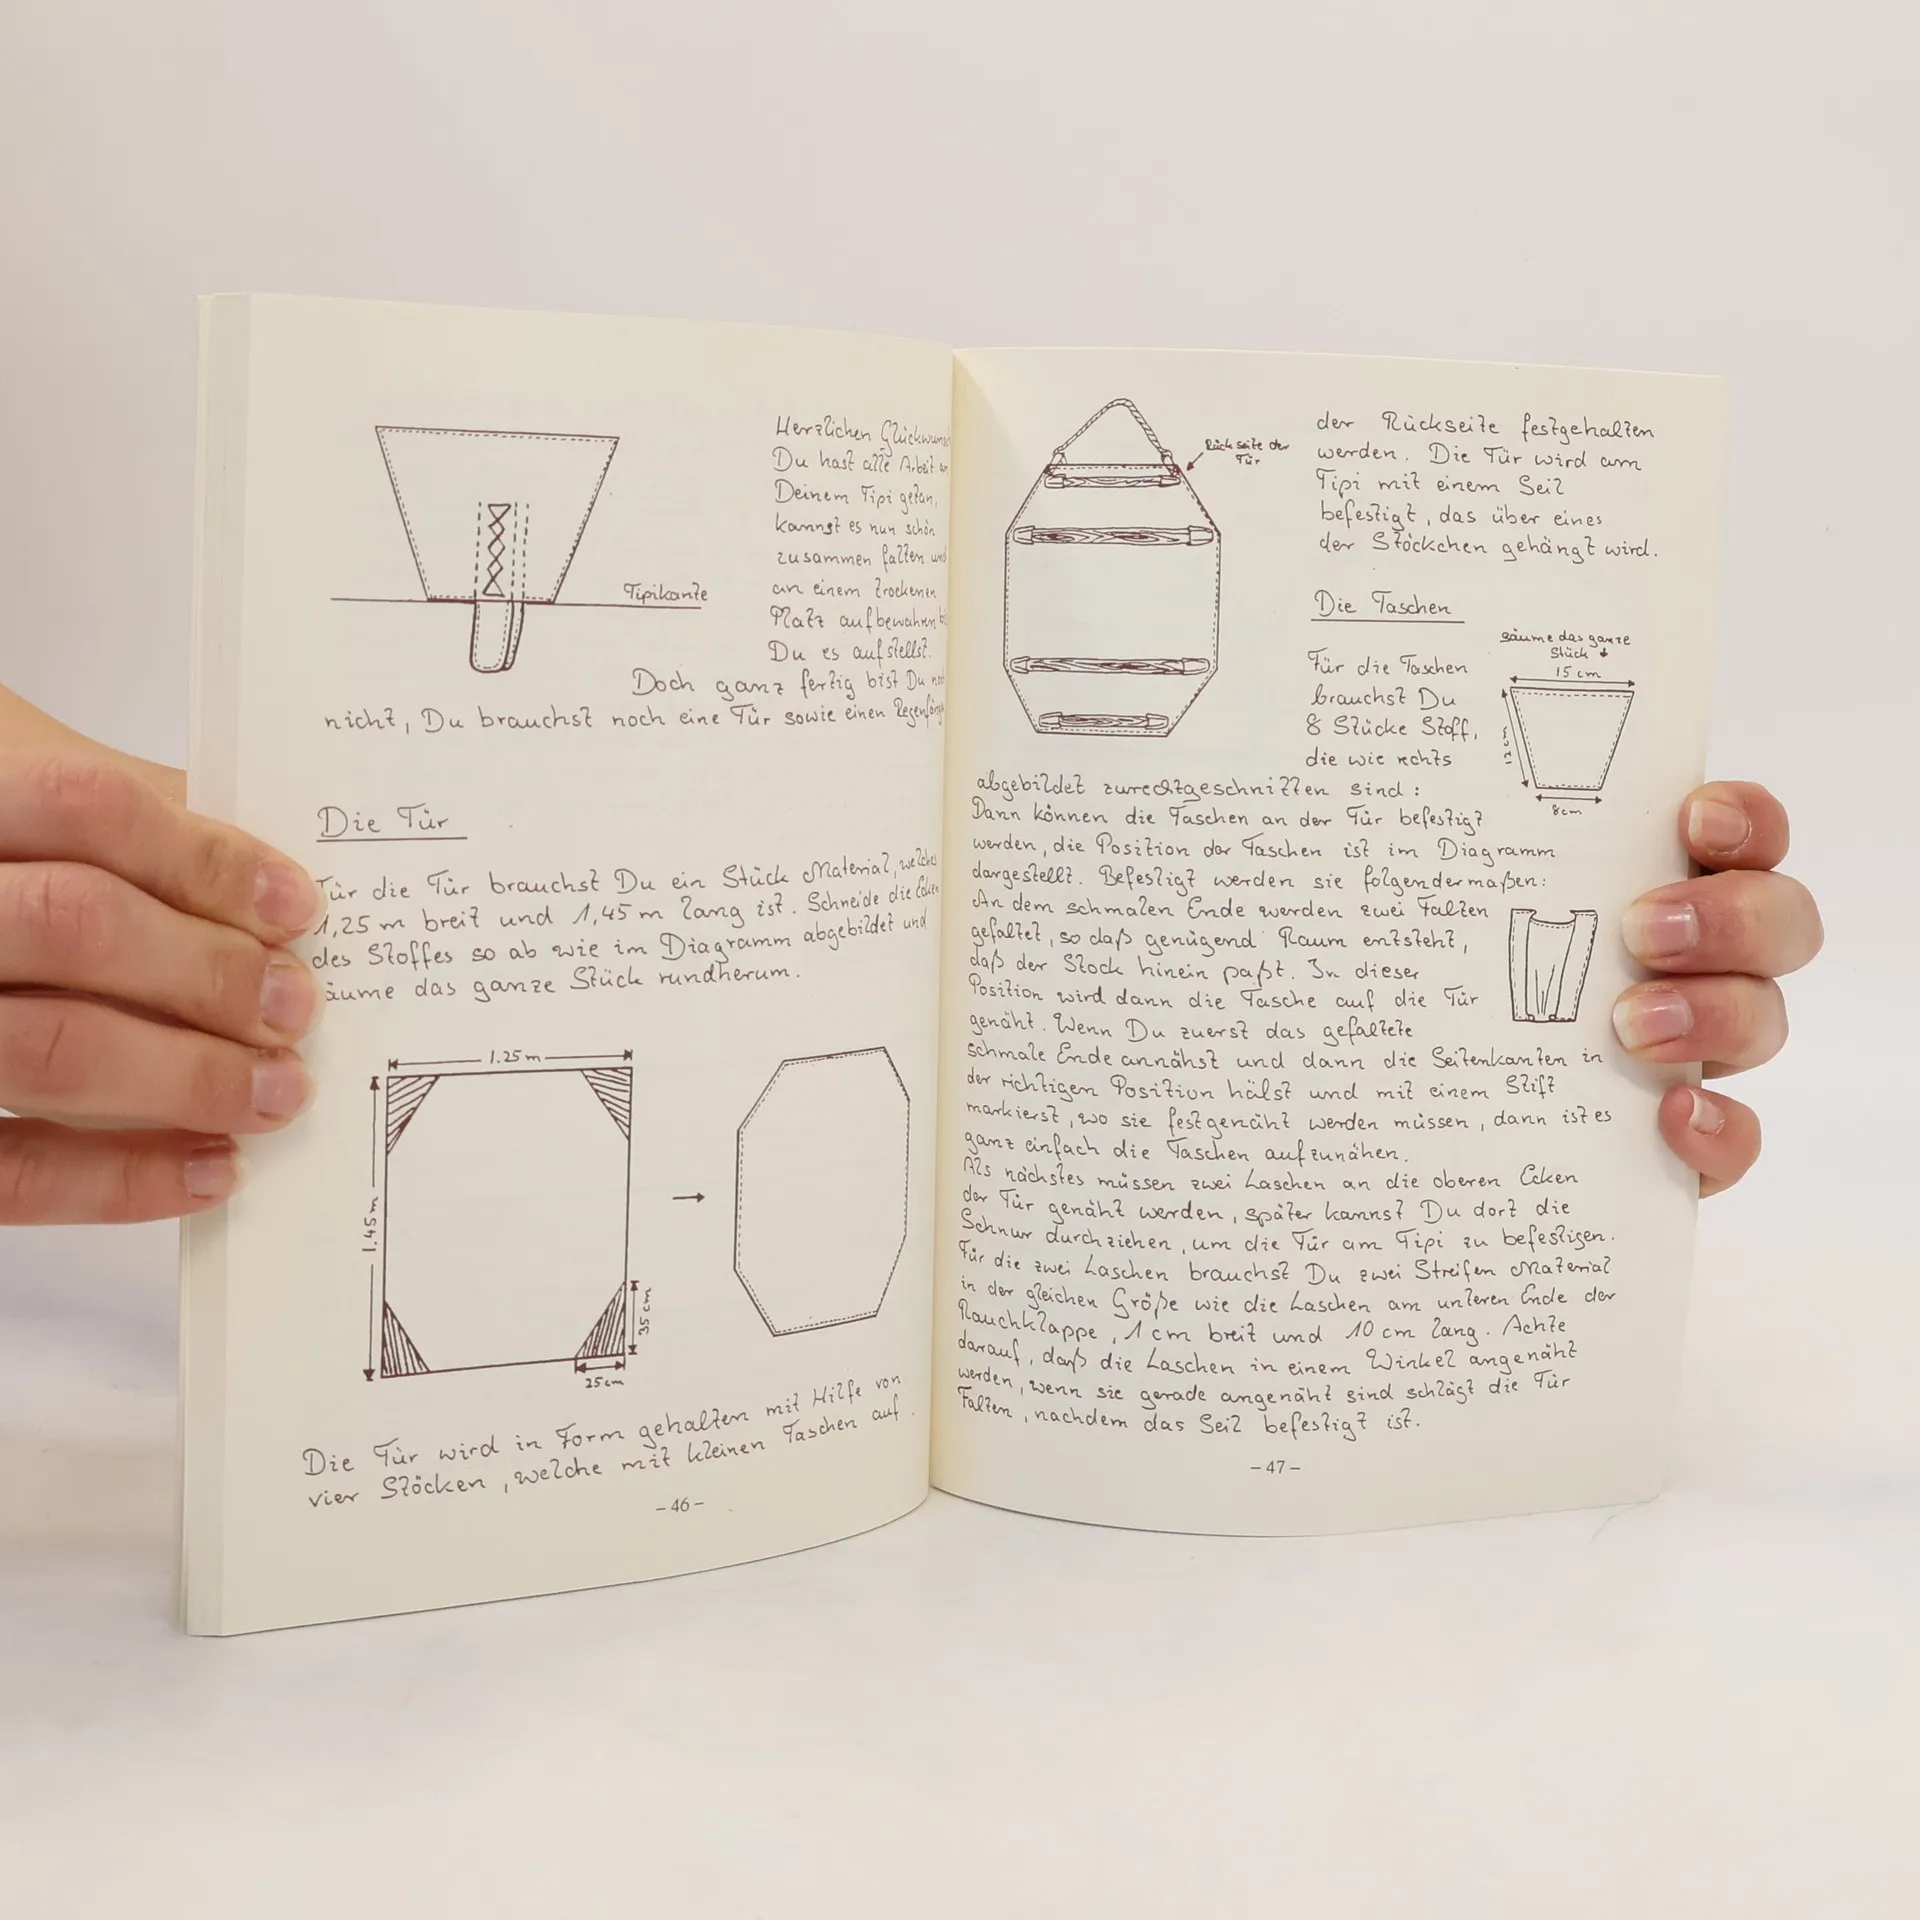 Herzlichen Glückwunsch
Du hast alle Arbeit an
Deinem Tipi getan,
kannst es nun schön
zusammen falten und
an einem trockenen
Platz aufbewahren bis
Du es aufstellst.
Doch ganz fertig bist Du noch
nicht, Du brauchst noch eine Tür sowie einen Regenfänger
Tipikante
Die Tür
Für die Tür brauchst Du ein Stück Material, welches
1,25 m breit und 1,45 m lang ist. Schneide die Ecken
des Stoffes so ab wie im Diagramm abgebildet und
säume das ganze Stück rundherum.
1.25 m
1.45 m
35 cm
25 cm
Die Tür wird in Form gehalten mit Hilfe von
vier Stöcken, welche mit kleinen Taschen auf
- 46 -
Rückseite der
Tür
der Rückseite festgehalten
werden. Die Tür wird am
Tipi mit einem Seil
befestigt, das über eines
der Stöckchen gehängt wird.
Die Taschen
säume das ganze
Stück
15 cm
12 cm
8 cm
Für die Taschen
brauchst Du
8 Stücke Stoff,
die wie rechts
abgebildet zurechtgeschnitten sind:
Dann können die Taschen an der Tür befestigt
werden, die Position der Taschen ist im Diagramm
dargestellt. Befestigt werden sie folgendermaßen:
An dem schmalen Ende werden zwei Falten
gefaltet, so daß genügend Raum entsteht,
daß der Stock hinein paßt. In dieser
Position wird dann die Tasche auf die Tür
genäht. Wenn Du zuerst das gefaltete
schmale Ende annähst und dann die Seitenkanten in
der richtigen Position hälst und mit einem Stift
markierst, wo sie festgenäht werden müssen, dann ist es
ganz einfach die Taschen aufzunähen.
Als nächstes müssen zwei Laschen an die oberen Ecken
der Tür genäht werden, später kannst Du dort die
Schnur durchziehen, um die Tür am Tipi zu befestigen.
Für die zwei Laschen brauchst Du zwei Streifen Material
in der gleichen Größe wie die Laschen am unteren Ende der
Rauchklappe, 1 cm breit und 10 cm lang. Achte
darauf, daß die Laschen in einem Winkel angenäht
werden, wenn sie gerade angenäht sind schlägt die Tür
Falten, nachdem das Seil befestigt ist.
- 47 -